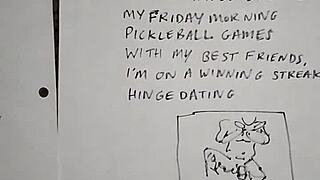 MY FRIDAY MORNING
PICKLEBALL GAMES
WITH MY BEST FRIENDS,
I'M ON A WINNING STREAK
HINGE DATING